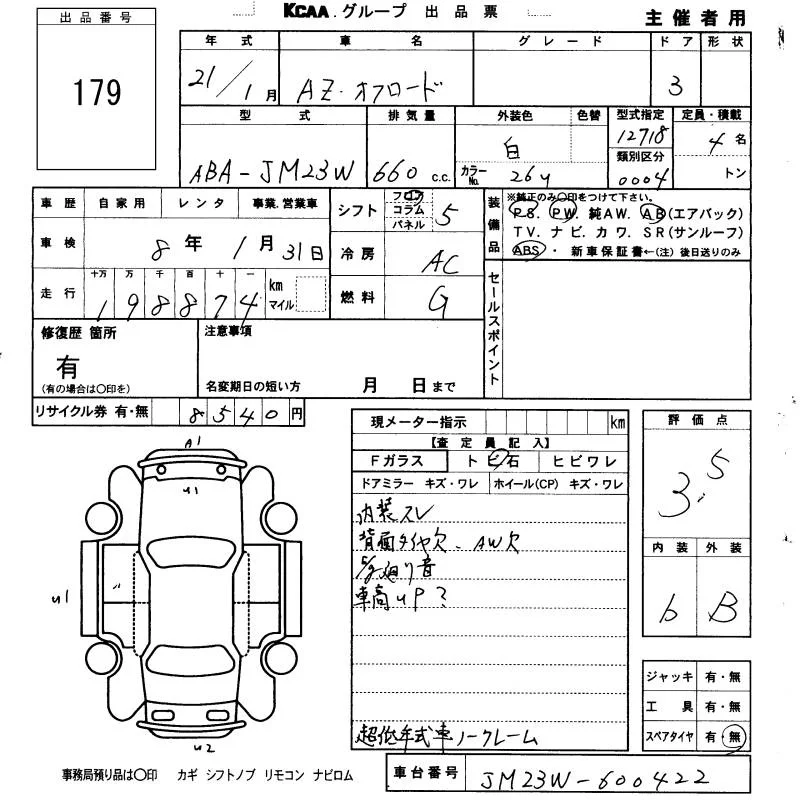 KCAA.グループ 出品票
主催者用
出品番号
179
年式 車名 グレード ドア 形状
21/1月 AZ・オフロード 3
型式 排気量 外装色 色替 型式指定 定員・積載
ABA-JM23W 660 c.c. 白 カラーNo. 26U 12718 4名
類別区分
0004 トン
車歴 自家用 レンタ 事業.営業車
シフト フロア コラム パネル 5
車検 8年1月31日
冷房 AC
走行 十万 万 千 百 十 一
198874 km マイル
燃料 G
装備品
※純正のみ〇印をつけて下さい。
PS. PW. 純AW. AB(エアバック)
TV. ナビ. カワ. SR(サンルーフ)
ABS・ 新車保証書←(注)後日送りのみ
セールスポイント
修復歴 箇所
有
(有の場合は〇印を)
注意事項
名変期日の短い方 月 日まで
リサイクル券 有・無 8540円
現メーター指示 km
【査定員記入】
Fガラス トビ石 ヒビワレ
ドアミラー キズ・ワレ ホイール(CP) キズ・ワレ
内装スレ
背面タイヤ欠、AW欠
廻り音
車高UP?
超低年式車ノークレーム
評価点
3.5
内装 外装
b B
ジャッキ 有・無
工具 有・無
スペアタイヤ 有・無
A1
U1
U1
U2
事務局預り品は〇印 カギ シフトノブ リモコン ナビロム
車台番号 JM23W-600422